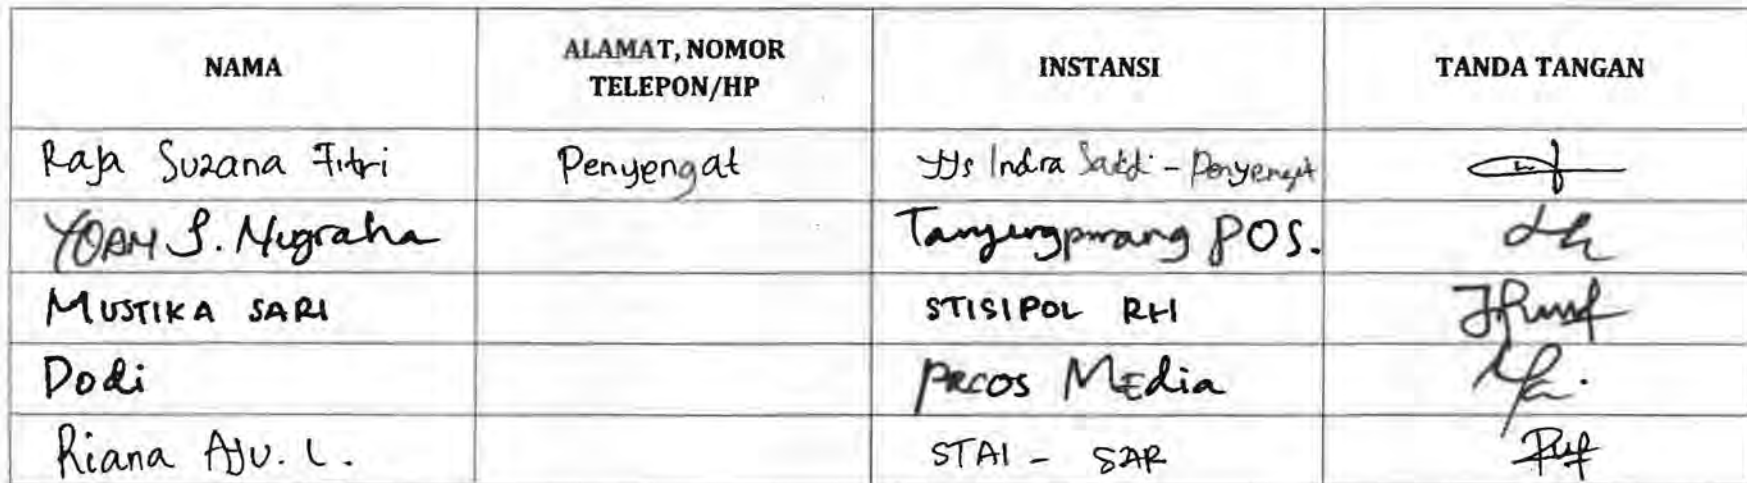 NAMA
ALAMAT, NOMOR
TELEPON/HP
INSTANSI
TANDA TANGAN
Raja Suzana Fitri Penyengat Indra Sakti - Penyengat
YOAN S. Nugraha Tanjungpinang POS.
MUSTIKA SARI STISIPOL RH
Dodi Media
Riana AJU. L. STAI - SAR